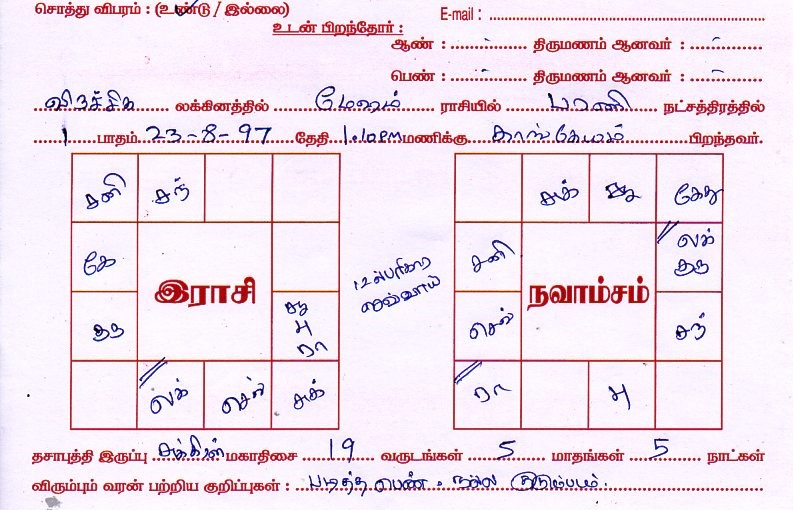 சொத்து விபரம் : (உண்டு / இல்லை)
E-mail :
உடன் பிறந்தோர் :
ஆண் : ........-........ திருமணம் ஆனவர் : ....-....
பெண் : ........-........ திருமணம் ஆனவர் : ....-....
விருச்சிக லக்கினத்தில் மேஷம் ராசியில் பரணி நட்சத்திரத்தில்
1 பாதம் 23-8-97 தேதி 1.10 PM மணிக்கு காங்கேயம் பிறந்தவர்.
சனி சந்
கே
குரு
இராசி
சூ
பு
ரா
லக் செவ் சுக்
12ல் பரிகார
செவ்வாய்
சுக் சூ கேது
சனி
லக்
குரு
நவாம்சம்
செவ்
சந்
ரா பு
தசாபுத்தி இருப்பு சுக்கிரன் மகாதிசை 19 வருடங்கள் 5 மாதங்கள் 5 நாட்கள்
விரும்பும் வரன் பற்றிய குறிப்புகள் : படித்த பெண். நல்ல குடும்பம்.